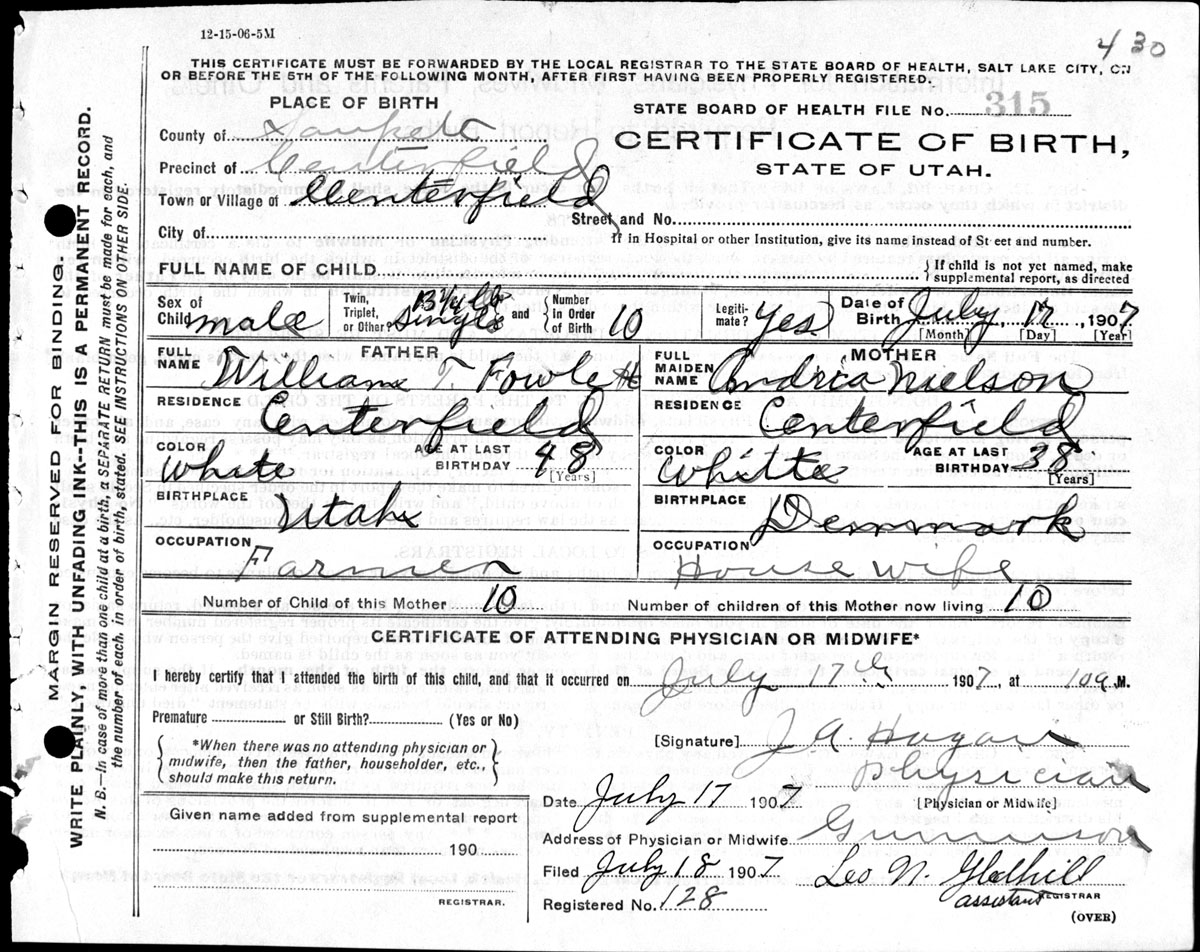 12-15-06-5M
4 30
THIS CERTIFICATE MUST BE FORWARDED BY THE LOCAL REGISTRAR TO THE STATE BOARD OF HEALTH, SALT LAKE CITY, ON
OR BEFORE THE 5TH OF THE FOLLOWING MONTH, AFTER FIRST HAVING BEEN PROPERLY REGISTERED.
PLACE OF BIRTH
STATE BOARD OF HEALTH FILE No. 315
County of Sanpete
CERTIFICATE OF BIRTH,
Precinct of Centerfield
STATE OF UTAH.
Town or Village of Centerfield
Street and No.
City of
If in Hospital or other Institution, give its name instead of St eet and number.
FULL NAME OF CHILD
{ If child is not yet named, make
supplemental report, as directed
Sex of Child male
Twin, Triplet, or Other? 13 1/4 lb Single and { Number in Order of Birth 10
Legitimate? Yes
Date of Birth July 17, 1907
[Month] [Day] [Year]
FATHER
FULL NAME William T. Fowlett
RESIDENCE
Centerfield
COLOR White AGE AT LAST BIRTHDAY 48
[Years]
BIRTHPLACE
Utah
OCCUPATION
Farmer
MOTHER
FULL MAIDEN NAME Andria Nielson
RESIDENCE
Centerfield
COLOR White AGE AT LAST BIRTHDAY 38
[Years]
BIRTHPLACE
Denmark
OCCUPATION
House wife
Number of Child of this Mother 10 Number of children of this Mother now living 10
CERTIFICATE OF ATTENDING PHYSICIAN OR MIDWIFE*
I hereby certify that I attended the birth of this child, and that it occurred on July 17th 1907, at 10 a M.
Premature or Still Birth? (Yes or No)
{ *When there was no attending physician or
midwife, then the father, householder, etc.,
should make this return. }
[Signature] J. A. Hagan
Physician
[Physician or Midwife]
Date July 17 1907
Address of Physician or Midwife Gunnison
Filed July 18 1907 Leo N. Gledhill
assistant REGISTRAR
Registered No. 128
(OVER)
Given name added from supplemental report
190
REGISTRAR.
MARGIN RESERVED FOR BINDING.
WRITE PLAINLY, WITH UNFADING INK--THIS IS A PERMANENT RECORD.
N. B.—In case of more than one child at a birth, a SEPARATE RETURN must be made for each, and
the number of each, in order of birth, stated. SEE INSTRUCTIONS ON OTHER SIDE.